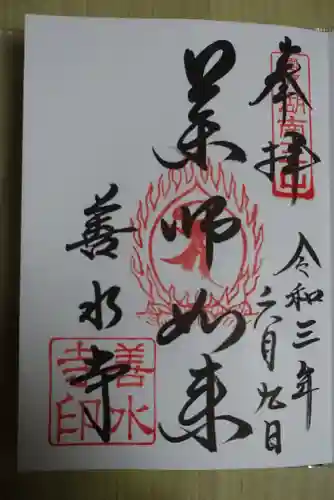 奉拝
令和三年
六月九日
薬師如来
善水寺
善水
寺印